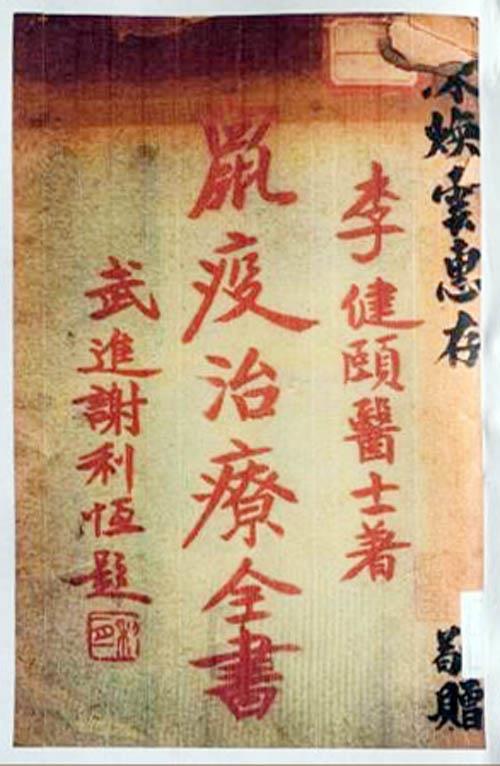 焕雲惠存
贈
李健頤醫士著
鼠疫治療全書
武進謝利恆題